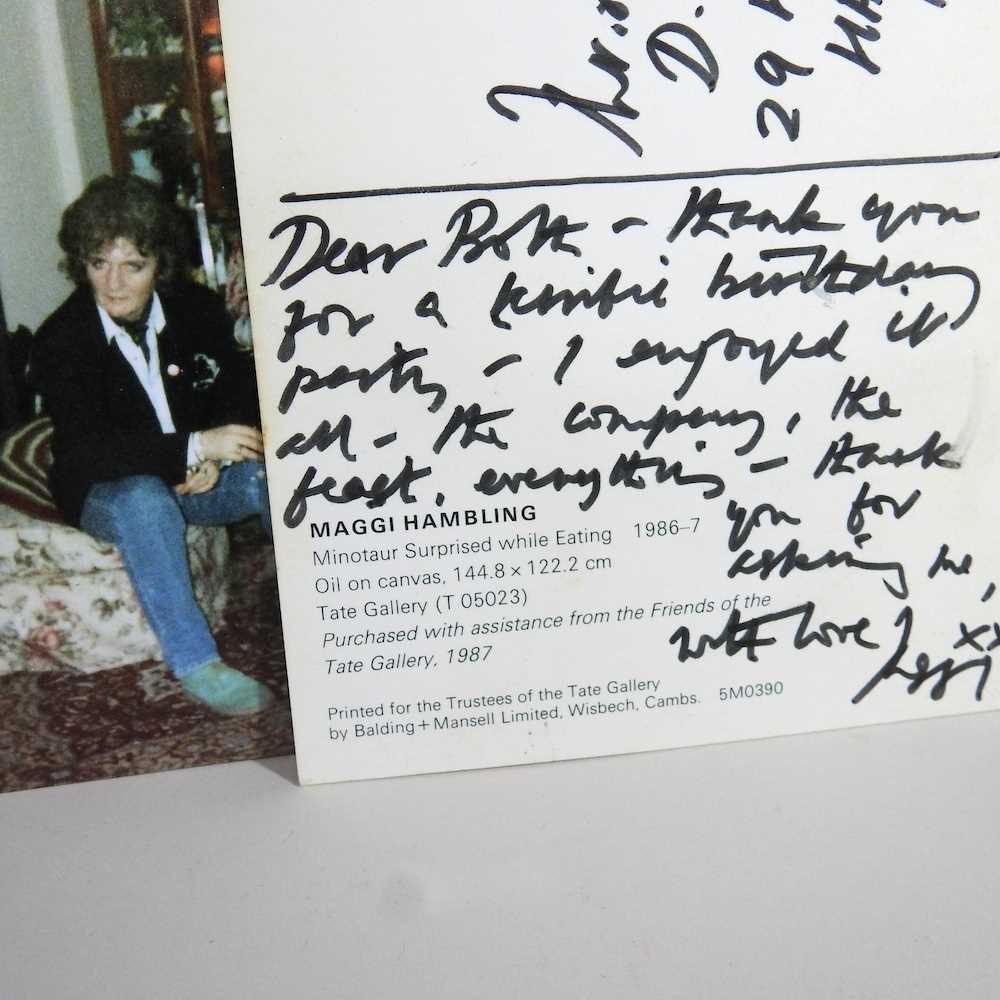 D.
29
Dear Both - thank you
for a terrific birthday
party - I enjoyed it
all - the company, the
feast, everything - thank
you for
asking me,
with love Maggi xx
MAGGI HAMBLING
Minotaur Surprised while Eating 1986–7
Oil on canvas, 144.8 × 122.2 cm
Tate Gallery (T 05023)
Purchased with assistance from the Friends of the
Tate Gallery, 1987
Printed for the Trustees of the Tate Gallery
by Balding + Mansell Limited, Wisbech, Cambs. 5M0390